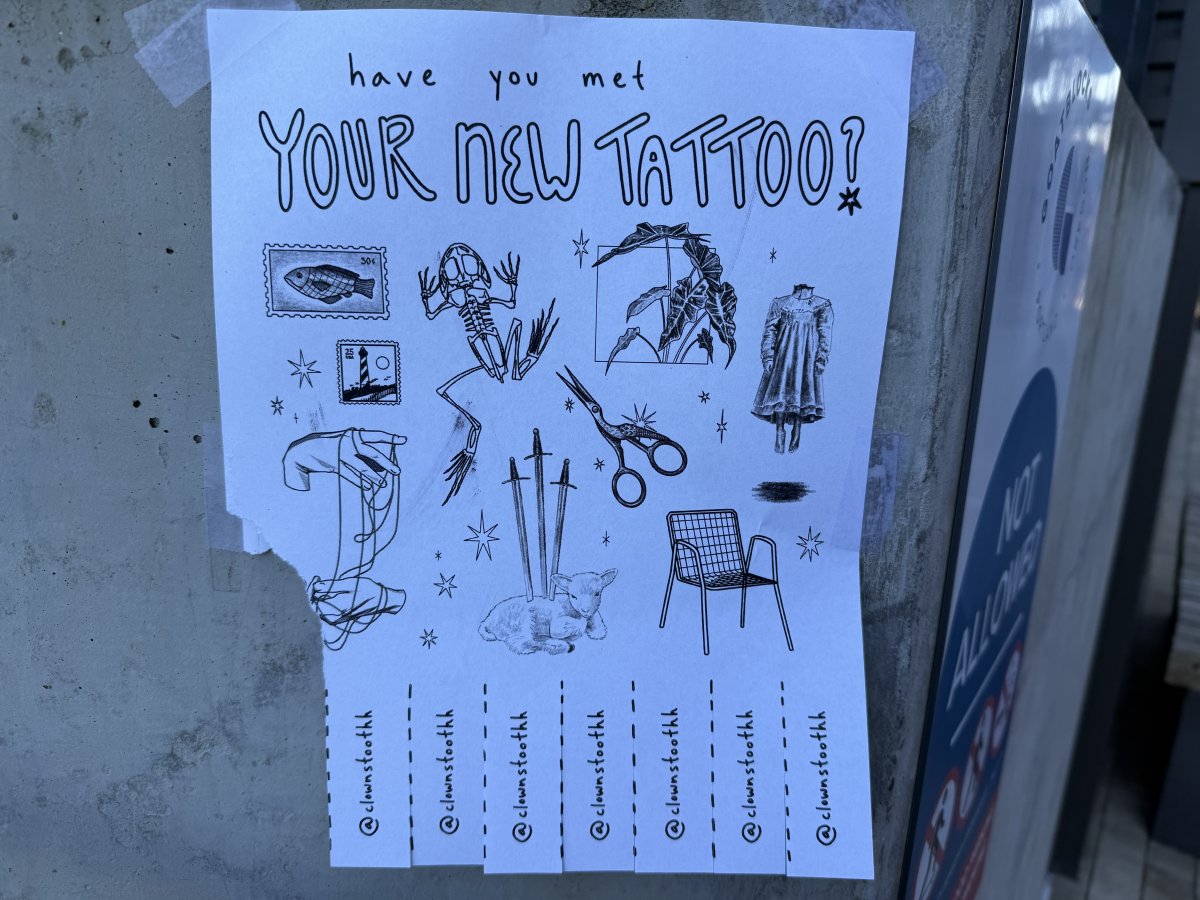 have you met
YOUR NEW TATTOO?
30¢
25
USA
@clownstoothh
@clownstoothh
@clownstoothh
@clownstoothh
@clownstoothh
@clownstoothh
@clownstoothh
NOT
ALLOWED